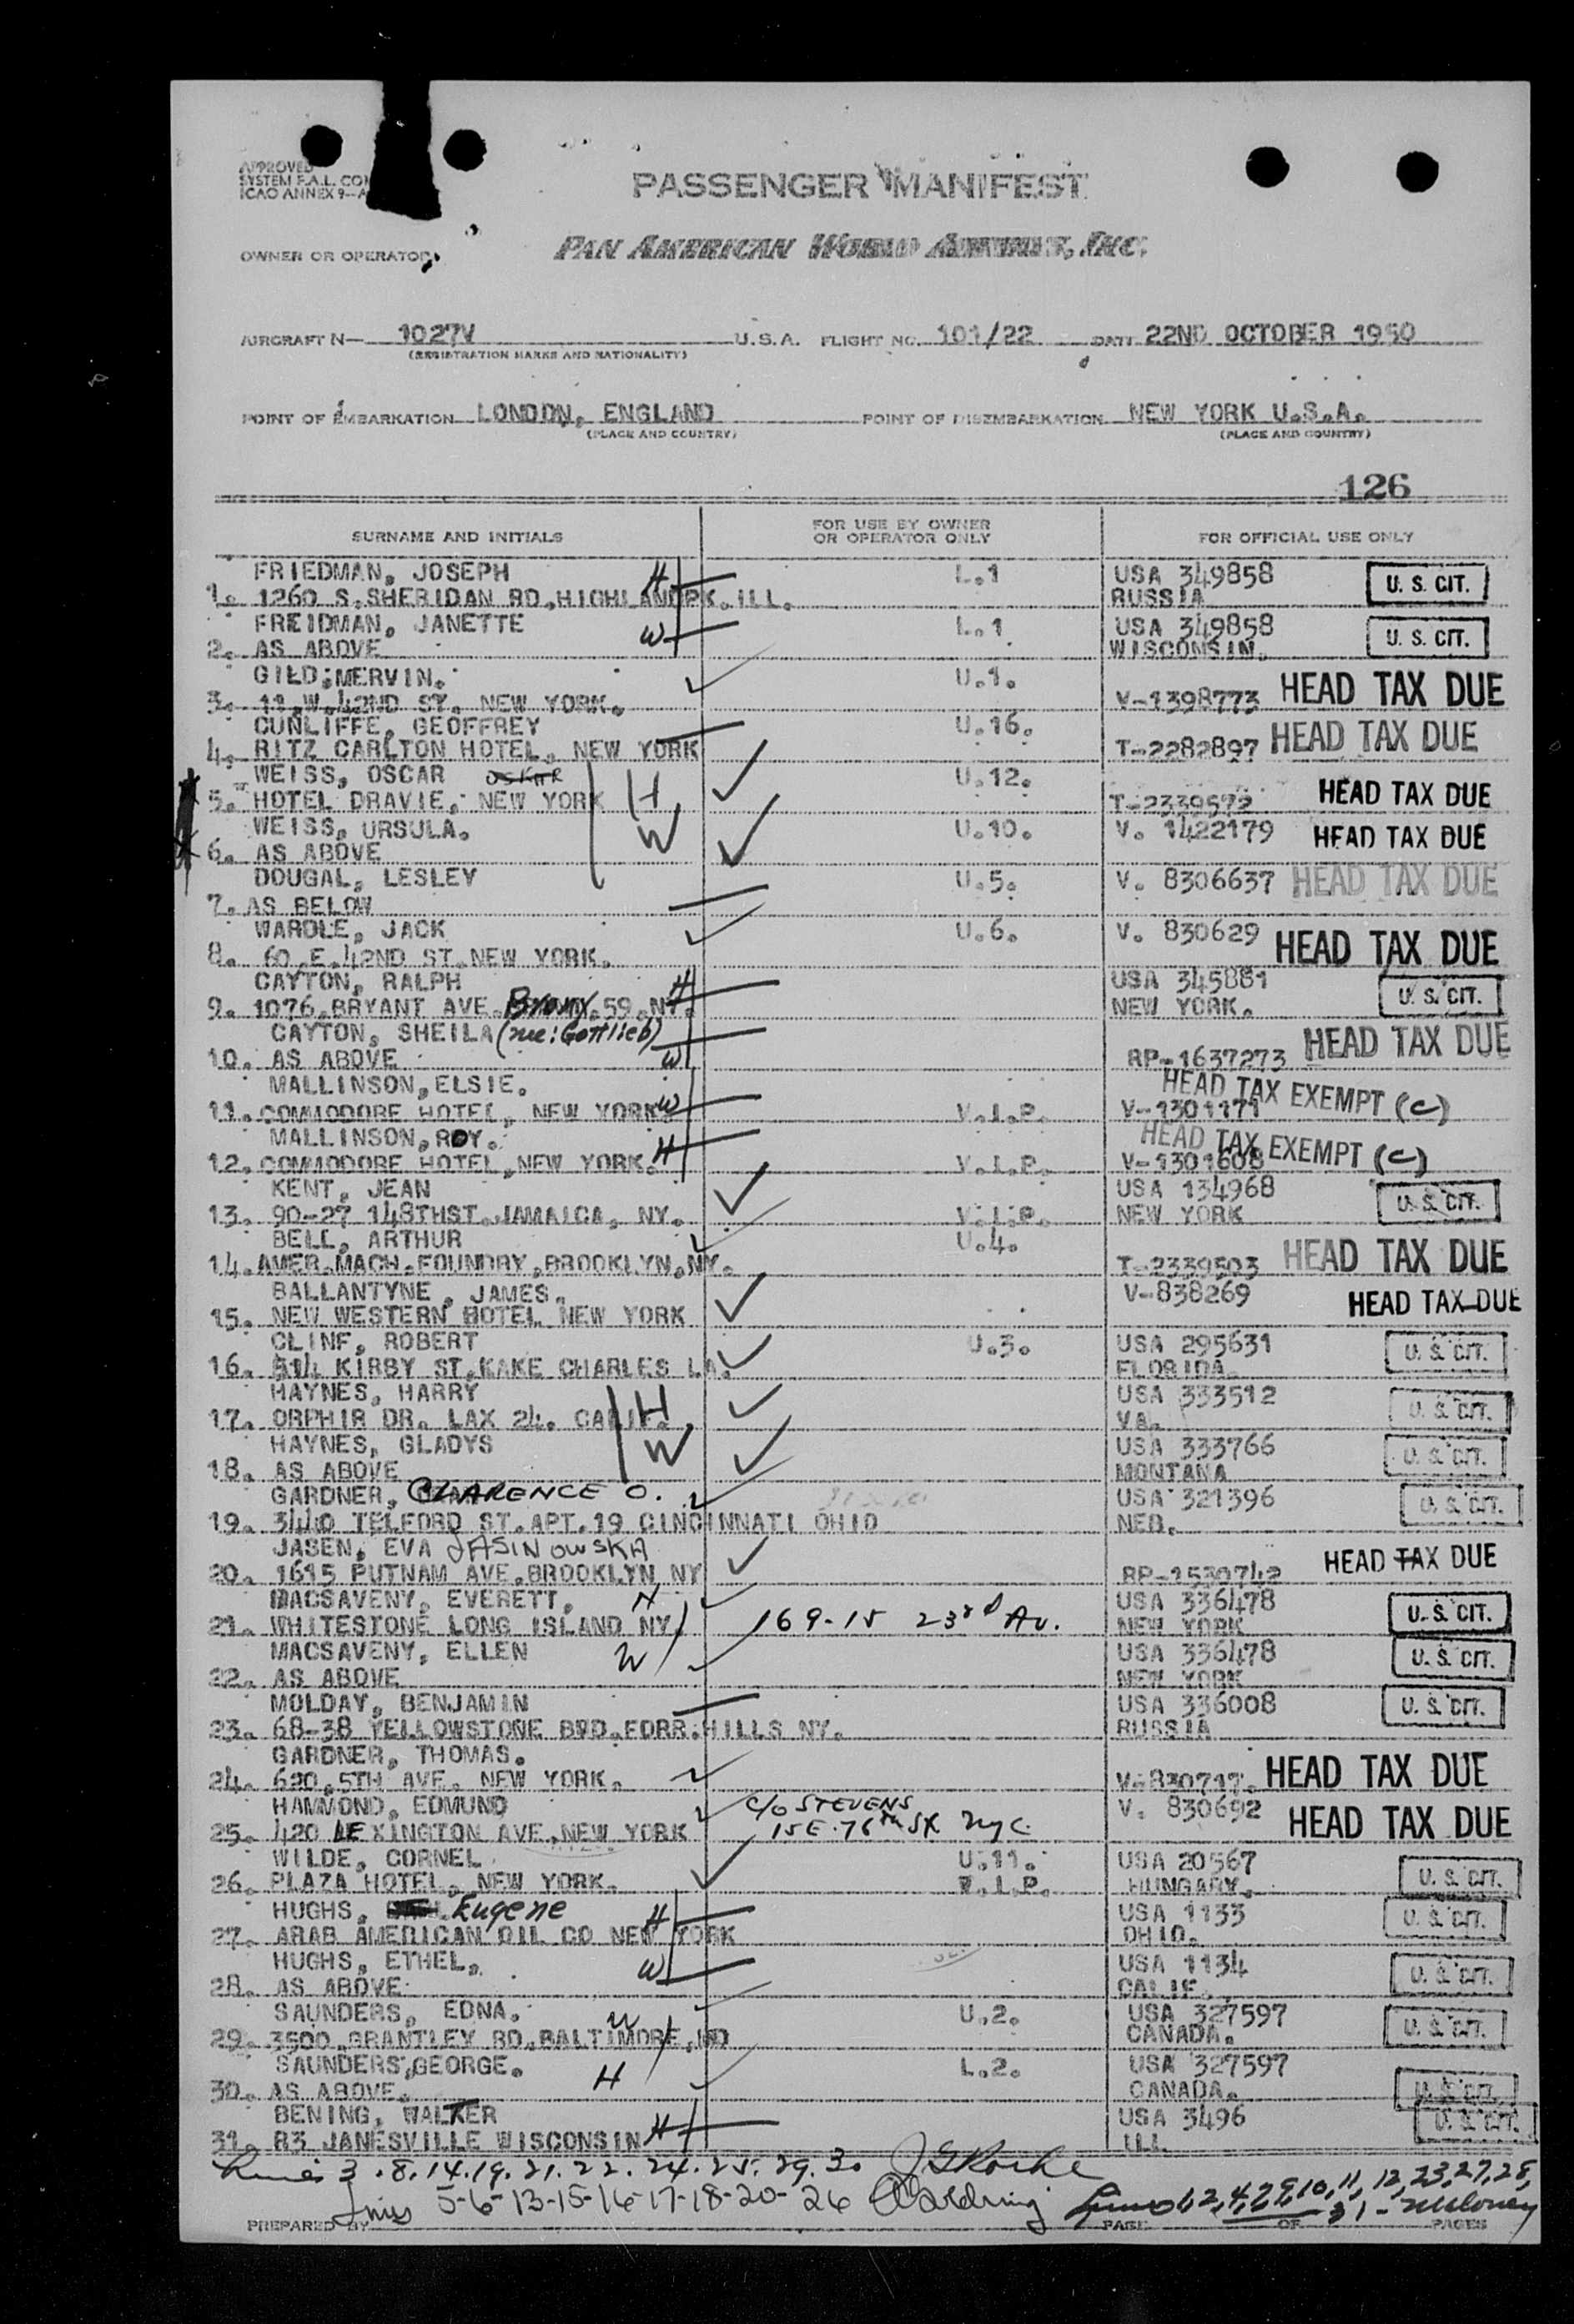 APPROVED
SYSTEM F.A.L. COM
ICAO ANNEX 9-A
PASSENGER MANIFEST
OWNER OR OPERATOR
PAN AMERICAN WORLD AIRWAYS, INC.
AIRCRAFT N— 1027V U.S.A. FLIGHT NO. 101/22 DATE 22ND OCTOBER 1950
(REGISTRATION MARKS AND NATIONALITY)
POINT OF EMBARKATION LONDON, ENGLAND POINT OF DISEMBARKATION NEW YORK U.S.A.
(PLACE AND COUNTRY) (PLACE AND COUNTRY)
126
SURNAME AND INITIALS FOR USE BY OWNER OR OPERATOR ONLY FOR OFFICIAL USE ONLY
FRIEDMAN, JOSEPH H L.1 USA 349858 U. S. CIT.
1. 1260 S.SHERIDAN RD.HIGHLANDPK.ILL. RUSSIA
FREIDMAN, JANETTE W L.1 USA 349858 U. S. CIT.
2. AS ABOVE WISCONSIN.
GILD;MERVIN. U.1.
3. 11.W.42ND ST. NEW YORK. V-1398773 HEAD TAX DUE
CUNLIFFE, GEOFFREY U.16.
4. RITZ CARLTON HOTEL, NEW YORK T-2282897 HEAD TAX DUE
WEISS, OSCAR OSKAR U.12.
5. HOTEL DRAVIE, NEW YORK H T-2339572 HEAD TAX DUE
WEISS, URSULA. W U.10. V. 1422179 HEAD TAX DUE
6. AS ABOVE
DOUGAL, LESLEY U.5. V. 8306637 HEAD TAX DUE
7. AS BELOW
WARDLE, JACK U.6. V. 830629 HEAD TAX DUE
8. 60.E.42ND ST.NEW YORK.
CAYTON, RALPH H USA 345881 U. S. CIT.
9. 1076.BRYANT AVE. Bronx.59.NY. NEW YORK.
CAYTON, SHEILA (nee: Gottlieb)
10. AS ABOVE W RP-1637273 HEAD TAX DUE
MALLINSON,ELSIE. HEAD TAX EXEMPT (C)
11. COMMODORE HOTEL, NEW YORK W V.I.P. V-1301171
MALLINSON,ROY. HEAD TAX EXEMPT (C)
12. COMMODORE HOTEL,NEW YORK. H V.I.P. V-1301608
KENT, JEAN USA 134968 U. S. CIT.
13. 90-27 148THST.JAMAICA, NY. V.I.P. NEW YORK
BELL, ARTHUR U.4.
14. AMER.MACH.FOUNDRY,BROOKLYN,NY. T-2339503 HEAD TAX DUE
BALLANTYNE, JAMES. V-838269 HEAD TAX DUE
15. NEW WESTERN HOTEL NEW YORK
CLINF, ROBERT U.3. USA 295631 U. S. CIT.
16. 514 KIRBY ST.KAKE CHARLES LA. FLORIDA.
HAYNES, HARRY H USA 333512 U. S. CIT.
17. ORPHIR DR. LAX 24. CALIF. VA.
HAYNES, GLADYS W USA 333766 U. S. CIT.
18. AS ABOVE MONTANA
GARDNER, CLARENCE O. USA 321396 U. S. CIT.
19. 3440 TELFORD ST.APT.19 CINCINNATI OHIO NEB.
JASEN, EVA JASINOWSKA
20. 1615 PUTNAM AVE.BROOKLYN NY RP-1530742 HEAD TAX DUE
MACSAVENY, EVERETT. H USA 336478 U. S. CIT.
21. WHITESTONE LONG ISLAND NY. 169-15 23rd Av. NEW YORK
MACSAVENY, ELLEN W USA 336478 U. S. CIT.
22. AS ABOVE NEW YORK
MOLDAY, BENJAMIN USA 336008 U. S. CIT.
23. 68-38 YELLOWSTONE BVD.FORR.HILLS NY. RUSSIA
GARDNER, THOMAS.
24. 620.5TH AVE. NEW YORK. V-830717. HEAD TAX DUE
HAMMOND, EDMUND c/o STEVENS V. 830692 HEAD TAX DUE
25. 420 LEXINGTON AVE.NEW YORK 15 E. 76th St NYC
WILDE, CORNEL U.11. USA 20567 U. S. CIT.
26. PLAZA HOTEL, NEW YORK. V.I.P. HUNGARY.
HUGHS, Eugene H USA 1133 U. S. CIT.
27. ARAB AMERICAN OIL CO NEW YORK OHIO.
HUGHS, ETHEL. W USA 1134 U. S. CIT.
28. AS ABOVE CALIF.
SAUNDERS, EDNA. W U.2. USA 327597 U. S. CIT.
29. 3500.GRANTLEY RD.BALTIMORE,MD CANADA.
SAUNDERS,GEORGE. H L.2. USA 327597
30. AS ABOVE. CANADA. U. S. CIT.
BENING, WALTER USA 3496 U. S. CIT.
31. R3 JANESVILLE WISCONSIN H ILL
Lines 3.8.14.19.21.22.24.25.29.30
Lines 5-6-13-15-16-17-18-20-26
Lines 1,2,4,7,9,10,11,12,23,27,28,
31 - Maloney
PREPARED BY PAGE OF PAGES